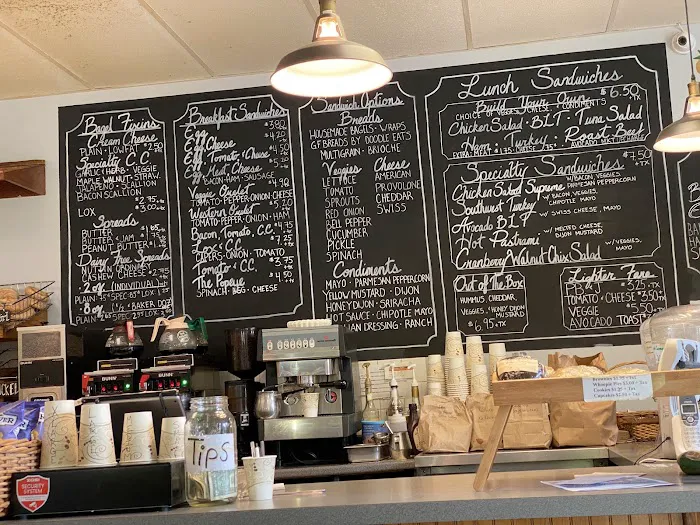 Bagel Fixins
Cream Cheese
PLAIN · LOWFAT $2.50
Specialty C.C.
GARLIC & HERB · VEGGIE
MAPLE WALNUT · STRAW.
JALAPEÑO · SCALLION
BACON SCALLION
$2.75
$3.00
LOX
Spreads
BUTTER
BUTTER & JAM
PEANUT BUTTER
Dairy Free Spreads
CASHEW CHEESE
2 oz. (INDIVIDUAL)
8 oz. (½ BAKER DOZ)
Breakfast Sandwiches
Egg $3.80
Egg & Cheese $4.20
Egg, Tomato, & Cheese $4.50
Egg, Meat, Cheese $5.20
BACON · HAM · SAUSAGE
Veggie Omelet $4.90
TOMATO · PEPPER · ONION
Western Omelet $5.20
TOMATO · PEPPER · ONION · HAM
Bacon, Tomato, C.C. $4.75
Lox & C.C. $7.25
CAPERS · ONION · TOMATO
Tomato & C.C. $3.75
The Popeye
SPINACH · EGG · CHEESE
Sandwich Options
Breads
HOUSEMADE BAGELS · WRAPS
GF BREADS BY DOODLE EATS
MULTIGRAIN · BRIOCHE
Veggies
LETTUCE
TOMATO
SPROUTS
RED ONION
BELL PEPPER
CUCUMBER
PICKLE
SPINACH
Cheese
AMERICAN
PROVOLONE
CHEDDAR
SWISS
Condiments
MAYO · PARMESAN PEPPERCORN
YELLOW MUSTARD · DIJON
HONEY DIJON · SRIRACHA
HOT SAUCE · CHIPOTLE MAYO
ITALIAN DRESSING · RANCH
Lunch Sandwiches
Build Your Own $6.50 +TX
CHOICE OF VEGGIES, CHEESE, CONDIMENTS
Chicken Salad · BLT · Tuna Salad
Ham · Turkey · Roast Beef
EXTRA MEAT
Specialty Sandwiches $7.50 +TX
Chicken Salad Supreme W/ BACON, VEGGIES, PARMESAN PEPPERCORN
Southwest Turkey W/ BACON, VEGGIES, CHIPOTLE MAYO
Avocado BLT W/ SWISS CHEESE, MAYO
Hot Pastrami W/ MELTED CHEESE, DIJON MUSTARD
Cranberry Walnut Chix Salad W/ VEGGIES, MAYO
Out of The Box
HUMMUS, CHEDDAR,
VEGGIES, HONEY DIJON
MUSTARD
$6.95 +TX
Lighter Fare
PB & J $3.25 +TX
TOMATO & CHEESE $3.50
VEGGIE $4.50
AVOCADO TOAST
BUNN
BUNN
Tips
SECURITY
SYSTEM
Brownies
Whoopie Pies
Cookies
Cupcakes